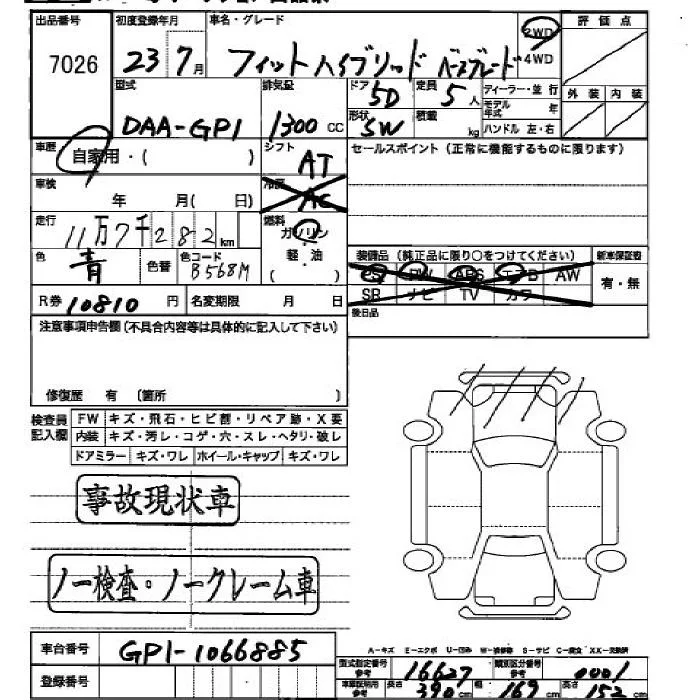 出品番号 初度登録年月 車名・グレード 2WD 評価点
7026 23 7月 フィットハイブリッド ベースグレード 4WD
型式 排気量 ドア 5D 定員 5人 ディーラー・並 行 外装 内装
DAA-GP1 1300 CC 形状 SW 積載 kg モデル年式 年
ハンドル 左・右
車歴 自家用・( ) シフト AT セールスポイント (正常に機能するものに限ります)
車検 年 月( 日) 冷房 AC
走行 11万7千282km 燃料 ガソリン
色 青 色替 色コード B568M 軽・油 ( ) 装備品 (純正品に限り○をつけてください) 新車保証書
PS PW ABS エアB AW 有・無
R券 10810 円 名変期限 月 日 SB ナビ TV カワ
後日品
注意事項申告欄(不具合内容等は具体的に記入して下さい)
修復歴 有 (箇所 )
検査員記入欄 FW キズ・飛石・ヒビ割・リペア跡・X要
内装 キズ・汚レ・コゲ・穴・スレ・ヘタリ・破レ
ドアミラー キズ・ワレ ホイール・キャップ キズ・ワレ
事故現状車
ノー検査・ノークレーム車
A-キズ E-エクボ U-凹み W-補修跡 S-サビ C-腐食 XX-交換済
車台番号 GP1-1066885
型式指定番号 参考 16627 類別区分番号 参考 0001
登録番号 車車証明用 参考 長さ 390cm 幅 169cm 高さ 152cm